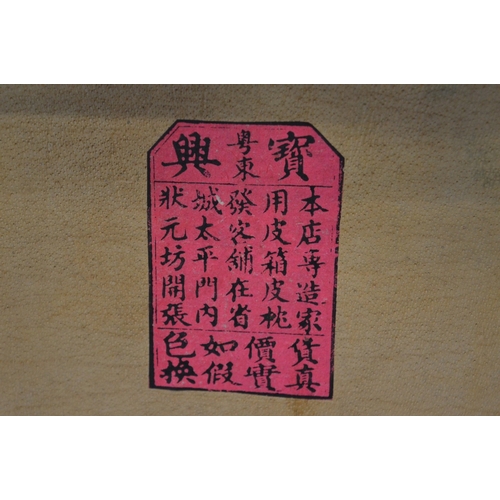 寶粵東興
本店專造家
用皮箱皮枕
發客舖在省
城太平門內
狀元坊開張
貨真
價實
如假
包換